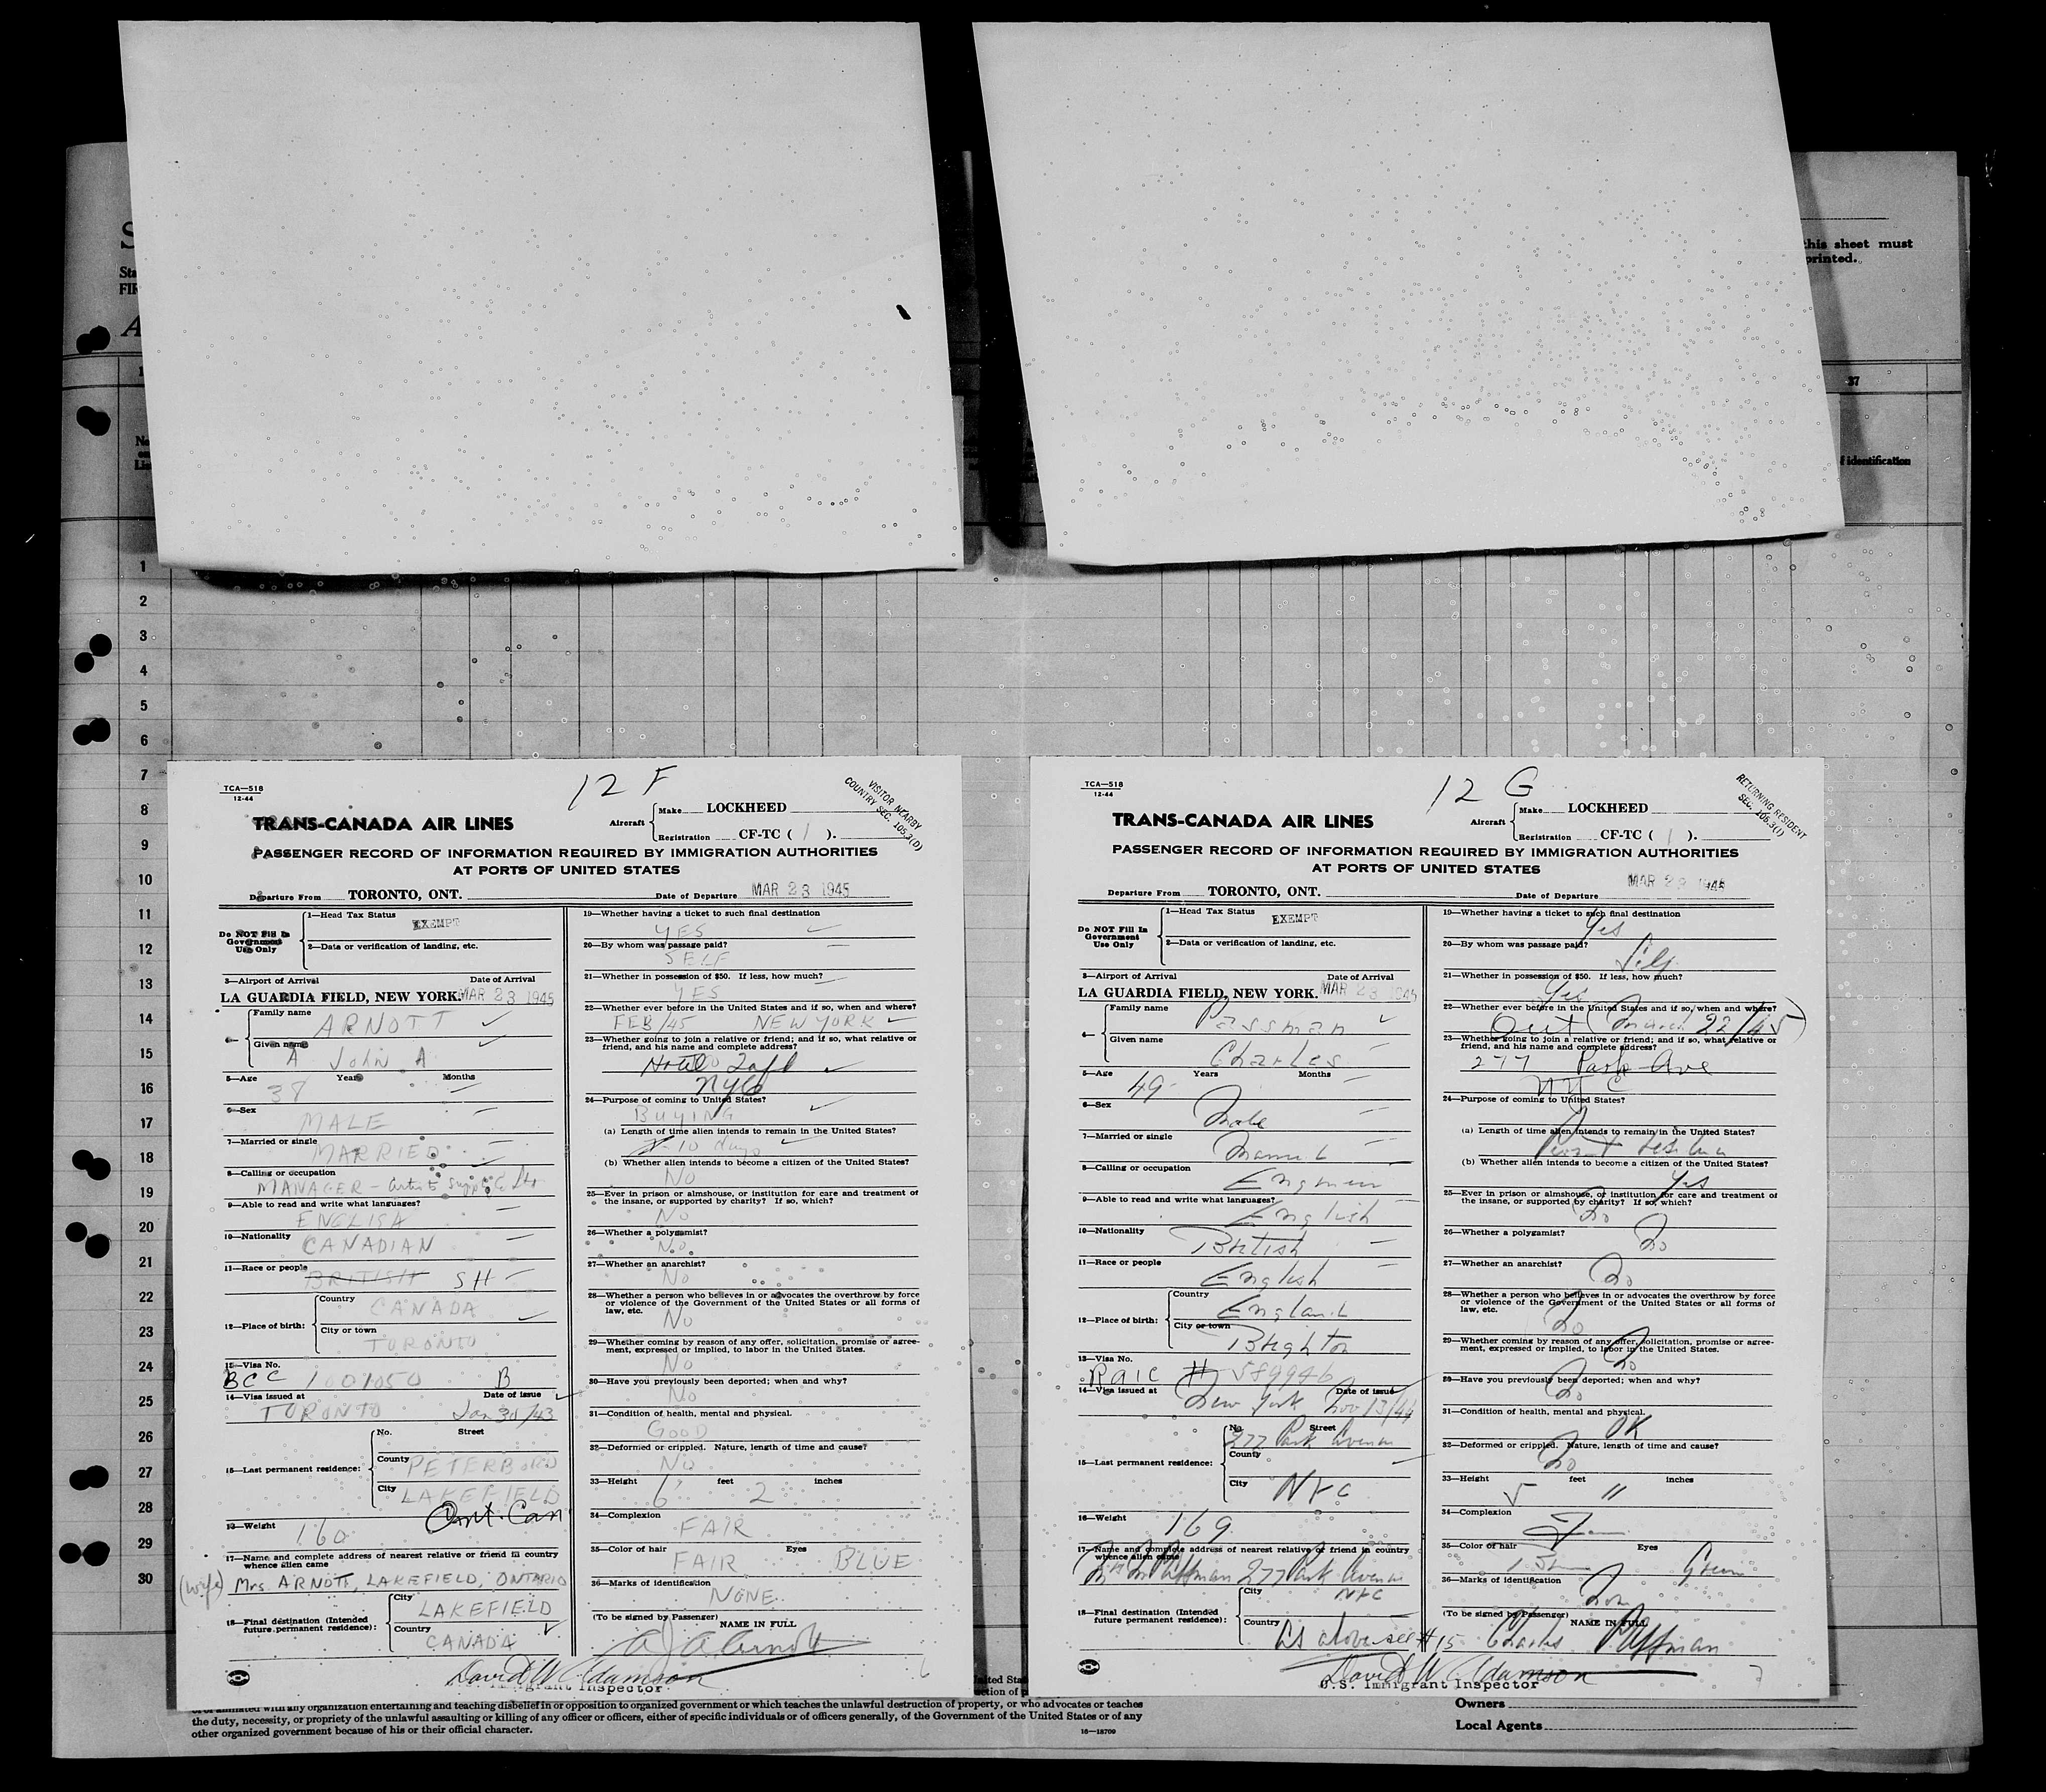 this sheet must
printed.
37
of identification
1
2
3
4
5
6
7
8
9
10
11
12
13
14
15
16
17
18
19
20
21
22
23
24
25
26
27
28
29
30
TCA—518
12-44
12 F
VISITOR NEARBY
COUNTRY SEC. 105.3(D)
TRANS-CANADA AIR LINES
Aircraft
Make LOCKHEED
Registration CF-TC ( 1 ).
PASSENGER RECORD OF INFORMATION REQUIRED BY IMMIGRATION AUTHORITIES
AT PORTS OF UNITED STATES
Departure From TORONTO, ONT. Date of Departure MAR 23 1945
Do NOT Fill In Government Use Only
1—Head Tax Status EXEMPT
2—Data or verification of landing, etc.
3—Airport of Arrival Date of Arrival
LA GUARDIA FIELD, NEW YORK. MAR 23 1945
4— Family name ARNOTT
Given name A John A
5—Age Years Months
38
6—Sex
MALE
7—Married or single
MARRIED
8—Calling or occupation
MANAGER — Artists Supply Co Ltd
9—Able to read and write what languages?
ENGLISH
10—Nationality
CANADIAN
11—Race or people BRITISH SH
12—Place of birth:
Country
CANADA
City or town
TORONTO
13—Visa No.
BCC 1001050 B
14—Visa issued at Date of issue
TORONTO Jan 30/43
15—Last permanent residence:
No. Street
County PETERBORO
City LAKEFIELD
Ont. Can
16—Weight 160
17—Name and complete address of nearest relative or friend in country
whence alien came
(wife) Mrs. ARNOTT, LAKEFIELD, ONTARIO
18—Final destination (Intended
future permanent residence):
City
LAKEFIELD
Country
CANADA
19—Whether having a ticket to such final destination
YES
20—By whom was passage paid?
SELF
21—Whether in possession of $50. If less, how much?
YES
22—Whether ever before in the United States and if so, when and where?
FEB/45 NEW YORK
23—Whether going to join a relative or friend; and if so, what relative or
friend, and his name and complete address?
Hotel Taft
NYC
24—Purpose of coming to United States?
BUYING
(a) Length of time alien intends to remain in the United States?
10 days
(b) Whether alien intends to become a citizen of the United States?
NO
25—Ever in prison or almshouse, or institution for care and treatment of
the insane, or supported by charity? If so, which?
NO
26—Whether a polygamist?
NO
27—Whether an anarchist?
NO
28—Whether a person who believes in or advocates the overthrow by force
or violence of the Government of the United States or all forms of
law, etc.
NO
29—Whether coming by reason of any offer, solicitation, promise or agree-
ment, expressed or implied, to labor in the United States.
NO
30—Have you previously been deported; when and why?
NO
31—Condition of health, mental and physical.
GOOD
32—Deformed or crippled. Nature, length of time and cause?
NO
33—Height feet inches
6' 2
34—Complexion
FAIR
35—Color of hair Eyes
FAIR BLUE
36—Marks of identification
NONE
(To be signed by Passenger) NAME IN FULL
A J A Arnott
David W Adamson
Immigrant Inspector
TCA—518
12-44
12 G
RETURNING RESIDENT
SEC. 106.3(1)
TRANS-CANADA AIR LINES
Aircraft
Make LOCKHEED
Registration CF-TC ( 1 ).
PASSENGER RECORD OF INFORMATION REQUIRED BY IMMIGRATION AUTHORITIES
AT PORTS OF UNITED STATES
Departure From TORONTO, ONT. Date of Departure MAR 23 1945
Do NOT Fill In Government Use Only
1—Head Tax Status EXEMPT
2—Data or verification of landing, etc.
3—Airport of Arrival Date of Arrival
LA GUARDIA FIELD, NEW YORK. MAR 23 1945
4— Family name Passman
Given name Charles
5—Age Years Months
49
6—Sex
Male
7—Married or single
Married
8—Calling or occupation
Engineer
9—Able to read and write what languages?
English
10—Nationality
British
11—Race or people
English
12—Place of birth:
Country
England
City or town
Brighton
13—Visa No.
# 589946
14—Visa issued at Date of issue
New York Nov 13/44
15—Last permanent residence:
No. Street
277 Park Avenue
County
City NYC
16—Weight 169
17—Name and complete address of nearest relative or friend in country
whence alien came
277 Park Avenue
NYC
18—Final destination (Intended
future permanent residence):
City
Country
As above see #15
19—Whether having a ticket to such final destination
Yes
20—By whom was passage paid?
Self
21—Whether in possession of $50. If less, how much?
Yes
22—Whether ever before in the United States and if so, when and where?
Out (March 22/45)
23—Whether going to join a relative or friend; and if so, what relative or
friend, and his name and complete address?
277 Park Ave
NYC
24—Purpose of coming to United States?
(a) Length of time alien intends to remain in the United States?
(b) Whether alien intends to become a citizen of the United States?
Yes
25—Ever in prison or almshouse, or institution for care and treatment of
the insane, or supported by charity? If so, which?
No
26—Whether a polygamist?
No
27—Whether an anarchist?
No
28—Whether a person who believes in or advocates the overthrow by force
or violence of the Government of the United States or all forms of
law, etc.
No
29—Whether coming by reason of any offer, solicitation, promise or agree-
ment, expressed or implied, to labor in the United States.
No
30—Have you previously been deported; when and why?
No
31—Condition of health, mental and physical.
OK
32—Deformed or crippled. Nature, length of time and cause?
No
33—Height feet inches
5 11
34—Complexion
35—Color of hair Eyes
Green
36—Marks of identification
(To be signed by Passenger) NAME IN FULL
Charles Passman
David W Adamson
U.S. Immigrant Inspector
or affiliated with any organization entertaining and teaching disbelief in or opposition to organized government or which teaches the unlawful destruction of property, or who advocates or teaches
the duty, necessity, or propriety of the unlawful assaulting or killing of any officer or officers, either of specific individuals or of officers generally, of the Government of the United States or of any
other organized government because of his or their official character.
16—18700
Owners
Local Agents